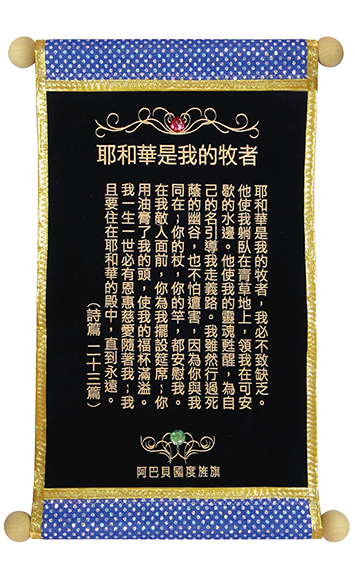 耶和華是我的牧者
耶和華是我的牧者，我必不致缺乏。
他使我躺臥在青草地上，領我在可安
歇的水邊。他使我的靈魂甦醒，為自
己的名引導我走義路。我雖然行過死
蔭的幽谷，也不怕遭害，因為你與我
同在；你的杖，你的竿，都安慰我。
在我敵人面前，你為我擺設筵席；你
用油膏了我的頭，使我的福杯滿溢。
我一生一世必有恩惠慈愛隨著我；我
且要住在耶和華的殿中，直到永遠。
（詩篇 二十三篇）
阿巴貝國度旌旗